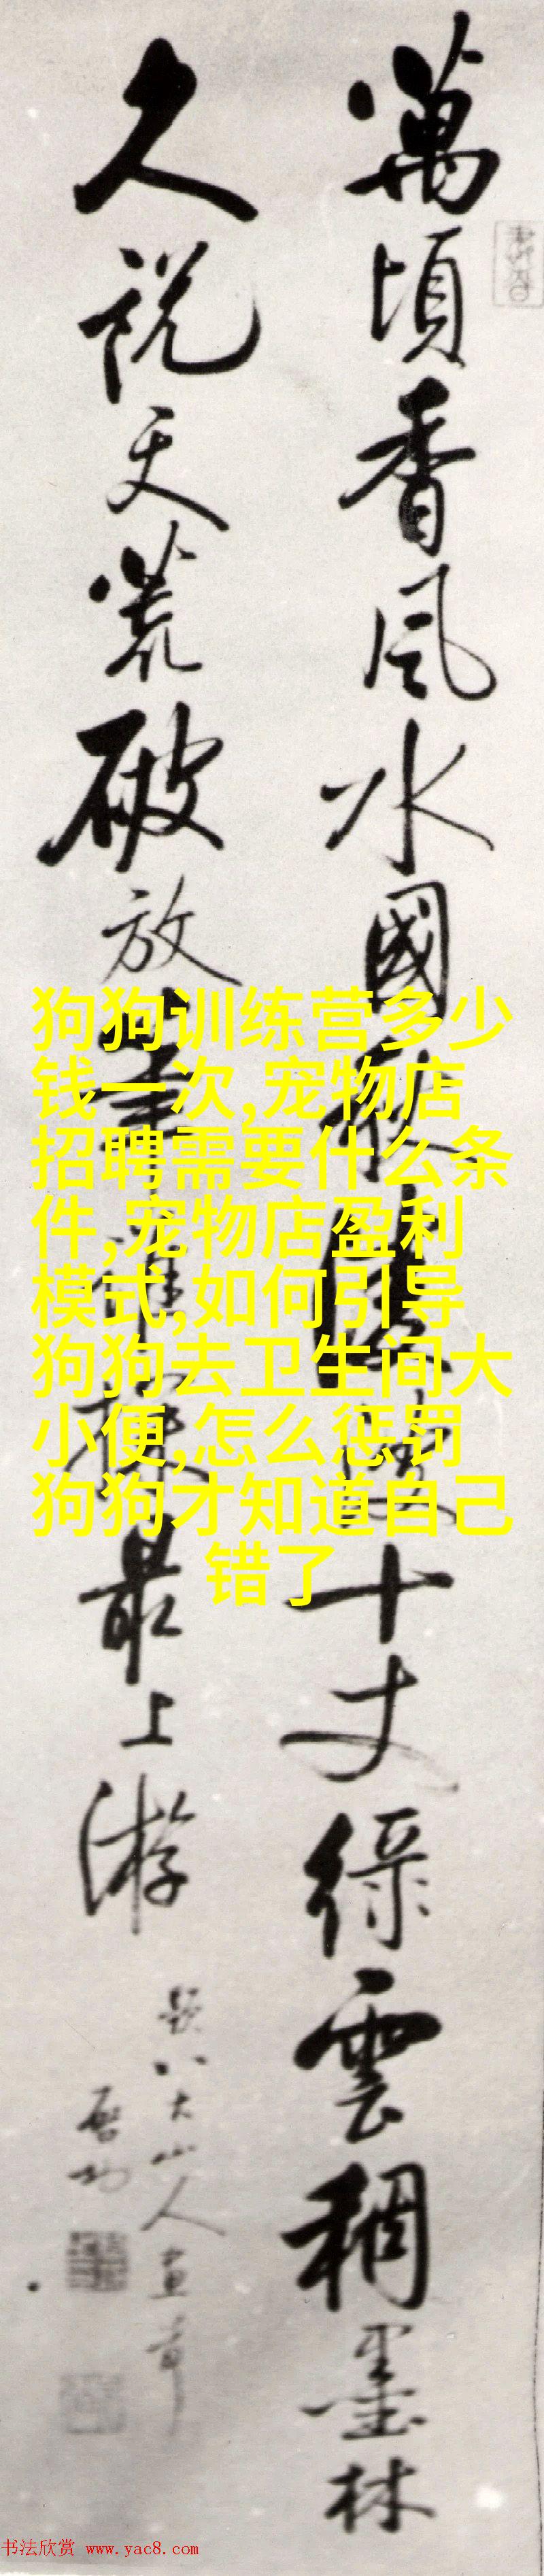 萬頃香風水國秋
十丈綠雲稠墨林
久說天荒破放
最上游
題八大山人畫
啓功
狗狗训练营多少
钱一次,宠物店
招聘需要什么条
件,宠物店盈利
模式,如何引导
狗狗去卫生间大
小便,怎么惩罚
狗狗才知道自己
错了
书法欣赏 www.yac8.com